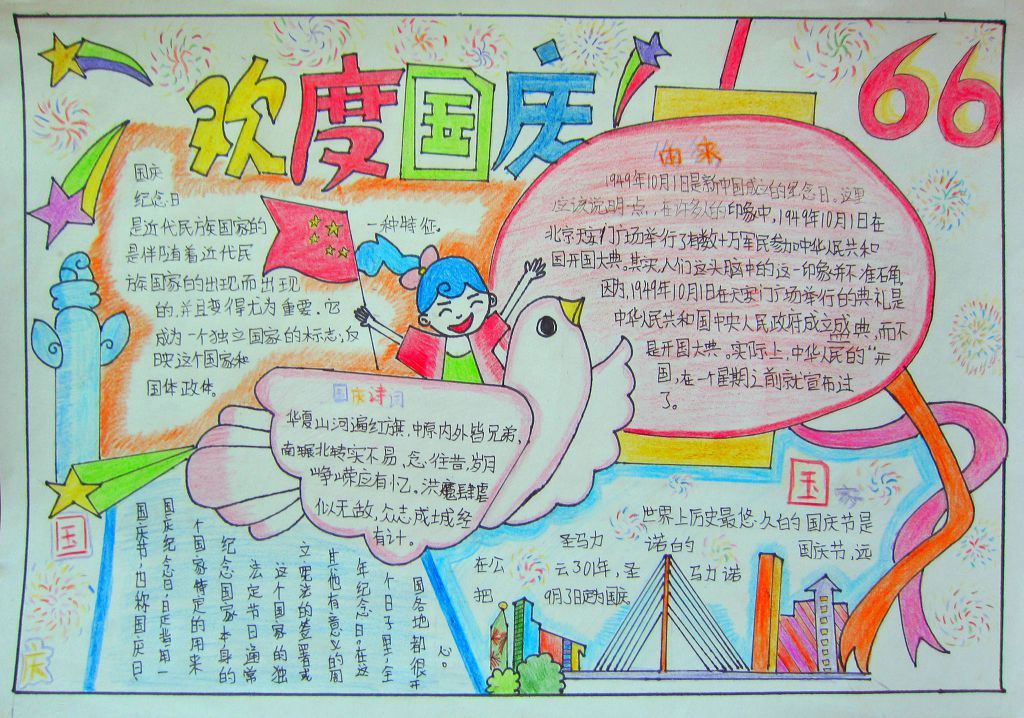 欢度国庆
66
国庆
纪念日
是近代民族国家的
一种特征.
是伴随着近代民
族国家的出现而出现
的,并且变得尤为重要。它
成为一个独立国家的标志,反
映这个国家和
国体政体。
由来
1949年10月1日是新中国成立的纪念日。这里
应该说明点,在许多人的印象中,1949年10月1日在
北京天安门广场举行了有数十万军民参加中华人民共和
国开国大典。其实,人们这头脑中的这一印象并不准确
因为,1949年10月1日在天安门广场举行的典礼是
中华人民共和国中央人民政府成立盛典,而不
是开国大典。实际上,中华人民的“开
国,在一个星期之前就宣布过
了。
国庆诗词
华夏山河遍红旗,中原内外皆兄弟,
南辗北转实不易,念往昔岁月
峥嵘应有忆。洪魔肆虐
似无敌,众志成城终
有计。
国庆
国庆节,也称国庆日
国庆纪念日,日是指用一
个国家特定的用来
纪念国家本身的
法定节日通常
这个国家的独
立宪法的签署或
其他有意义的周
年纪念日。在这
个日子里,全
国各地都很开
心。
国庆
世界上历史最悠久的国庆节是
圣马力诺的国庆节,远
在公元301年,圣马力诺
把9月3日定为国庆